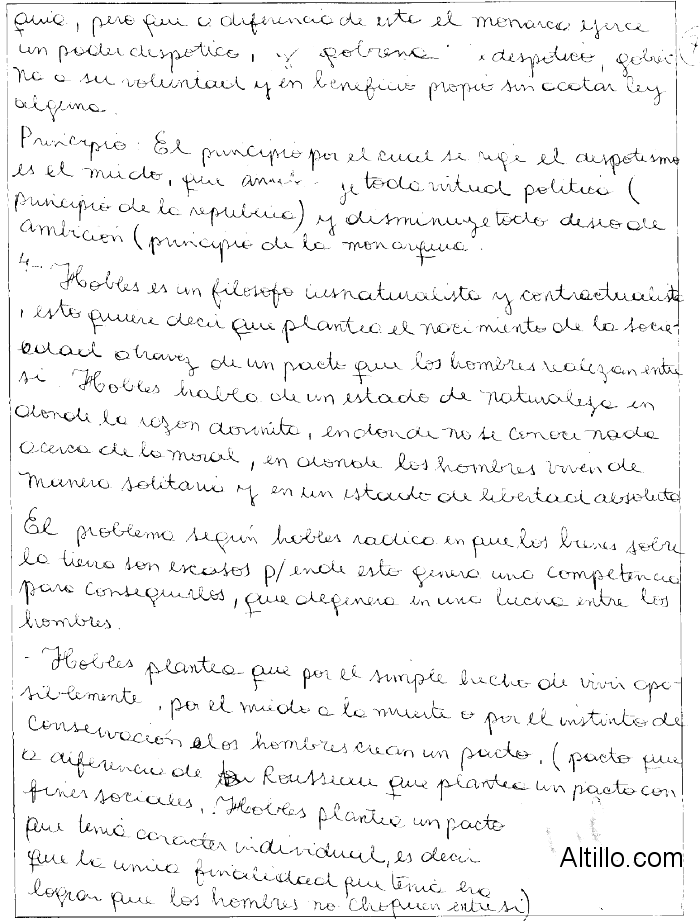 quia, pero que a diferencia de este el monarca ejerce
un poder despotico, y gobierna despotico, gobier
na a su voluntad y en beneficio propio sin acatar ley
alguna.
Principio: El principio por el cual se rige el despotismo
es el miedo, que toda virtud politica (
principio de la republica) y disminuye todo deseo de
ambición (principio de la monarquia.
4- Hobbes es un filosofo iusnaturalista y contractualista
, esto quiere decir que plantea el nacimiento de la socie-
edad atravez de un pacto que los hombres realizan entre
si. Hobbes habla de un estado de naturaleza en
donde la razon dormita, en donde no se conoce nada
acerca de la moral, en donde los hombres viven de
manera solitaria y en un estado de libertad absoluta
El problema según hobbes radica en que los bienes sobre
la tierra son escasos p/ende esto genera una competencia
para conseguirlos, que degenera en una lucha entre los
hombres.
- Hobbes plantea que por el simple hecho de vivir apa-
siblemente, por el miedo a la muerte o por el instinto de
conservación los hombres crean un pacto. (pacto que
a diferencia de Rousseau que plantea un pacto con
fines sociales, Hobbes plantea un pacto
que tenia caracter individual, es decir
que la unica finalidad que tenia era
lograr que los hombres no choquen entre si)
Altillo.com